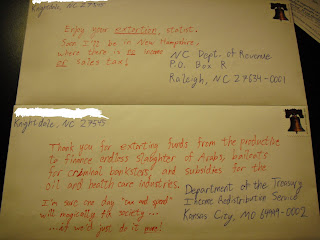 NC 27545
Enjoy your extortion, statist.
Soon I'll be in New Hampshire,
where there is no income
or sales tax!
NC Dept. of Revenue
P.O. Box R
Raleigh, NC 27634-0001
Knightdale, NC 27545
Thank you for extorting funds from the productive
to finance endless slaughter of Arabs, bailouts
for criminal banksters, and subsidies for the
oil and health care industries.
I'm sure one day "tax and spend"
will magically fix society...
...if we'd just do it more!
Department of the Treasury
Income Redistribution Service
Kansas City, MO 64999-0002